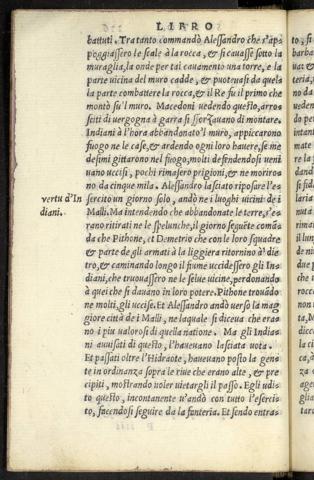 LIBRO
battuti. Tra tanto commandò Alessandro che s'ap=
poggiassero le scale à la rocca, & si cauasse sotto la
muraglia, la onde per tai cauamento una torre, e la
parte uicina del muro cadde, & poteuasi da quela
la parte combattere la rocca, & il Re fu il primo che
montò su'l muro. Macedoni uedendo questo, arros
siti di uergogna à garra si sforzauano di montare.
Indiani à l'hora abbandonato'l muro, appiccarono
fuogo ne le case, & ardendo ogni loro hauere, se me
desimi gittarono nel fuogo, molti defendendosi ueni
uano uccisi, pochi rimasero prigioni, & ne moriro=
no da cinque mila. Alessandro lasciato riposare l'es
vertu d'In
diani.
sercito un giorno solo, andò ne i luoghi uicini de i
Malli. Ma intendendo che abbandonate le terre, s'e=
rano ritirati ne le spelunche, il giorno seguēte comā=
da che Pithone, et Demetrio che con le loro squadre
& parte degli armati à la liggiera ritornino à die
tro, & caminando longo il fiume uccidessero gli In=
diani, che truouassero ne le selue uicine, perdonando
à quei che si dauano in loro potere. Pithone trouādo=
ne molti, gli uccise. Et Alessandro andò uerso la mag
giore città de i Malli, ne laquale si diceua che era=
no i piu ualorosi di quella natione. Ma gli India=
ni auuisati di questo, l'haueuano lasciata uota.
Et passati oltre l'Hidraote, haueuano posto la gen=
te in ordinanza sopra le riue che erano alte, & pre
cipiti, mostrando uoler uietargli il passo. Egli udi=
to questo, incontanente u'andò con tutto l'eserci=
to, facendosi seguire da la fanteria. Et sendo entra=